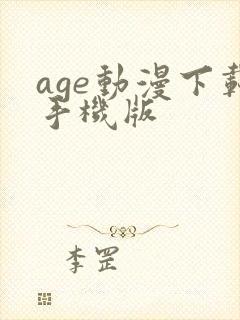 age動漫下載
手機版
李罡